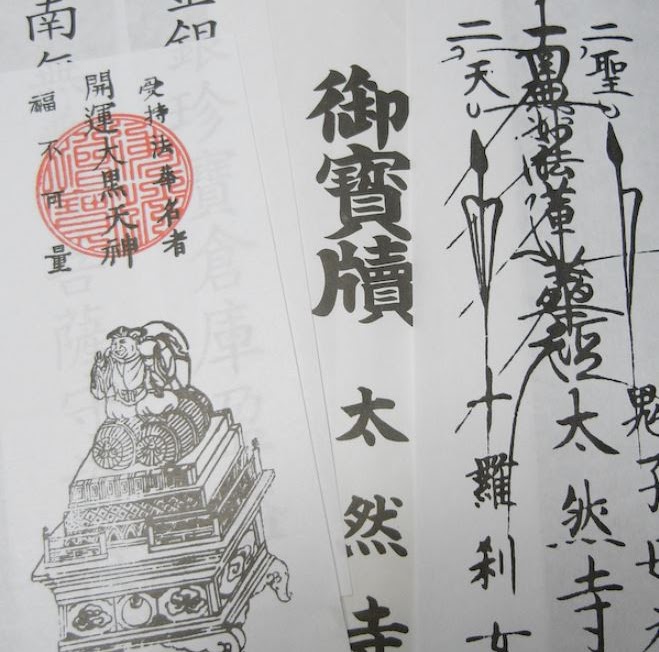 二聖
鬼子母
南無妙法蓮華經
太然寺
二天
十羅刹女
御寶牘 太然寺
金銀珍寶倉庫盈
受持法華名者
開運大黒天神
福不可量
南無
菩薩守